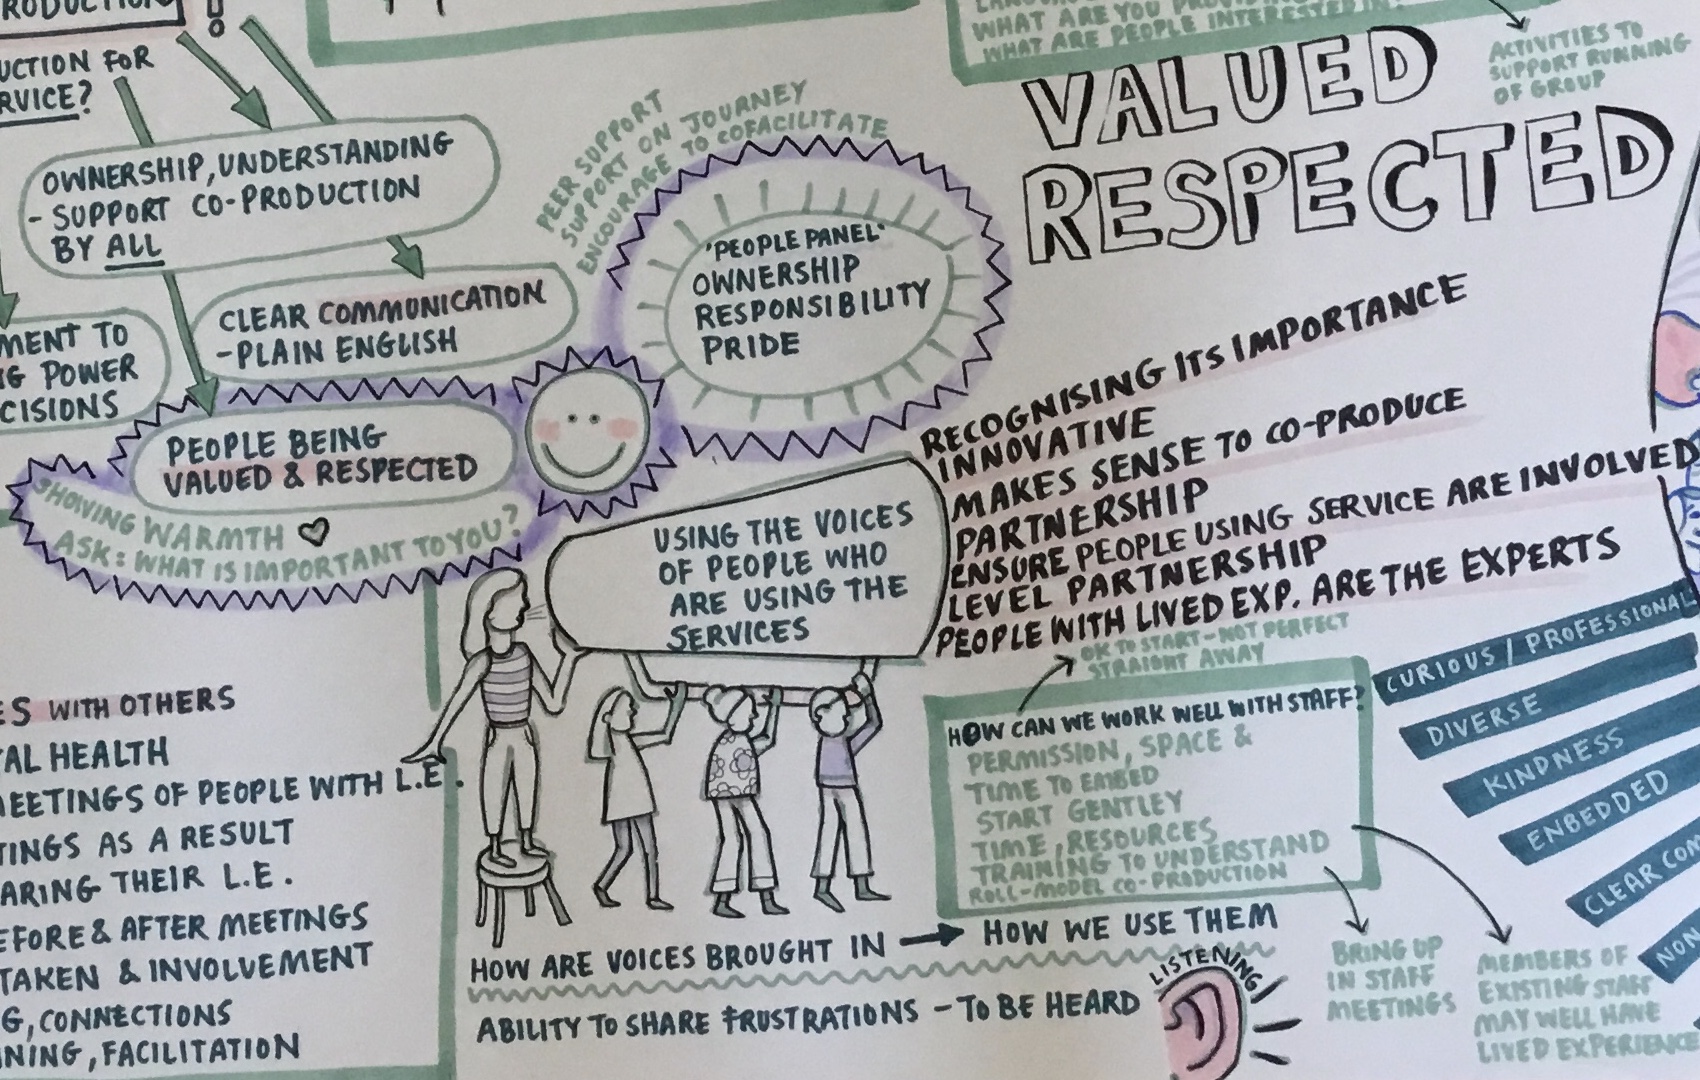 !
UCTION FOR
RVICE?
OWNERSHIP, UNDERSTANDING
- SUPPORT CO-PRODUCTION
BY ALL
CLEAR COMMUNICATION
- PLAIN ENGLISH
MENT TO
G POWER
CISIONS
PEOPLE BEING
VALUED & RESPECTED
SHOWING WARMTH
ASK: WHAT IS IMPORTANT TO YOU?
PEER SUPPORT
SUPPORT ON JOURNEY
ENCOURAGE TO COFACILITATE
'PEOPLE PANEL'
OWNERSHIP
RESPONSIBILITY
PRIDE
WHAT ARE YOU
WHAT ARE PEOPLE INTERESTED IN?
ACTIVITIES TO
SUPPORT RUNNING
OF GROUP
VALUED
RESPECTED
USING THE VOICES
OF PEOPLE WHO
ARE USING THE
SERVICES
RECOGNISING ITS IMPORTANCE
INNOVATIVE
MAKES SENSE TO CO-PRODUCE
PARTNERSHIP
ENSURE PEOPLE USING SERVICE ARE INVOLVED
LEVEL PARTNERSHIP
PEOPLE WITH LIVED EXP. ARE THE EXPERTS
OK TO START - NOT PERFECT
STRAIGHT AWAY
HOW CAN WE WORK WELL WITH STAFF?
PERMISSION, SPACE &
TIME TO EMBED
START GENTLEY
TIME, RESOURCES
TRAINING TO UNDERSTAND
ROLL-MODEL CO-PRODUCTION
BRING UP
IN STAFF
MEETINGS
MEMBERS OF
EXISTING STAFF
MAY WELL HAVE
LIVED EXPERIENCE
CURIOUS / PROFESSIONAL
DIVERSE
KINDNESS
ENBEDDED
CLEAR COM
NON
ES WITH OTHERS
TAL HEALTH
MEETINGS OF PEOPLE WITH L.E.
TINGS AS A RESULT
ARING THEIR L.E.
EFORE & AFTER MEETINGS
TAKEN & INVOLVEMENT
G, CONNECTIONS
NING, FACILITATION
HOW ARE VOICES BROUGHT IN → HOW WE USE THEM
ABILITY TO SHARE FRUSTRATIONS - TO BE HEARD
LISTENING